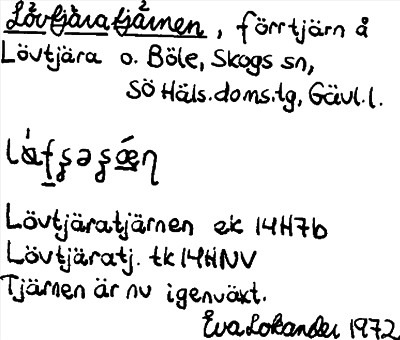 Lövtjäratjärnen, förrtjärn å
Lövtjära o. Böle, Skogs sn,
Sö Häls.doms.tg, Gävl.l.
Lövtjäratjärnen ek 14H7b
Lövtjäratj. tk 14HNV
Tjärnen är nu igenväxt.
Eva Lokander 1972